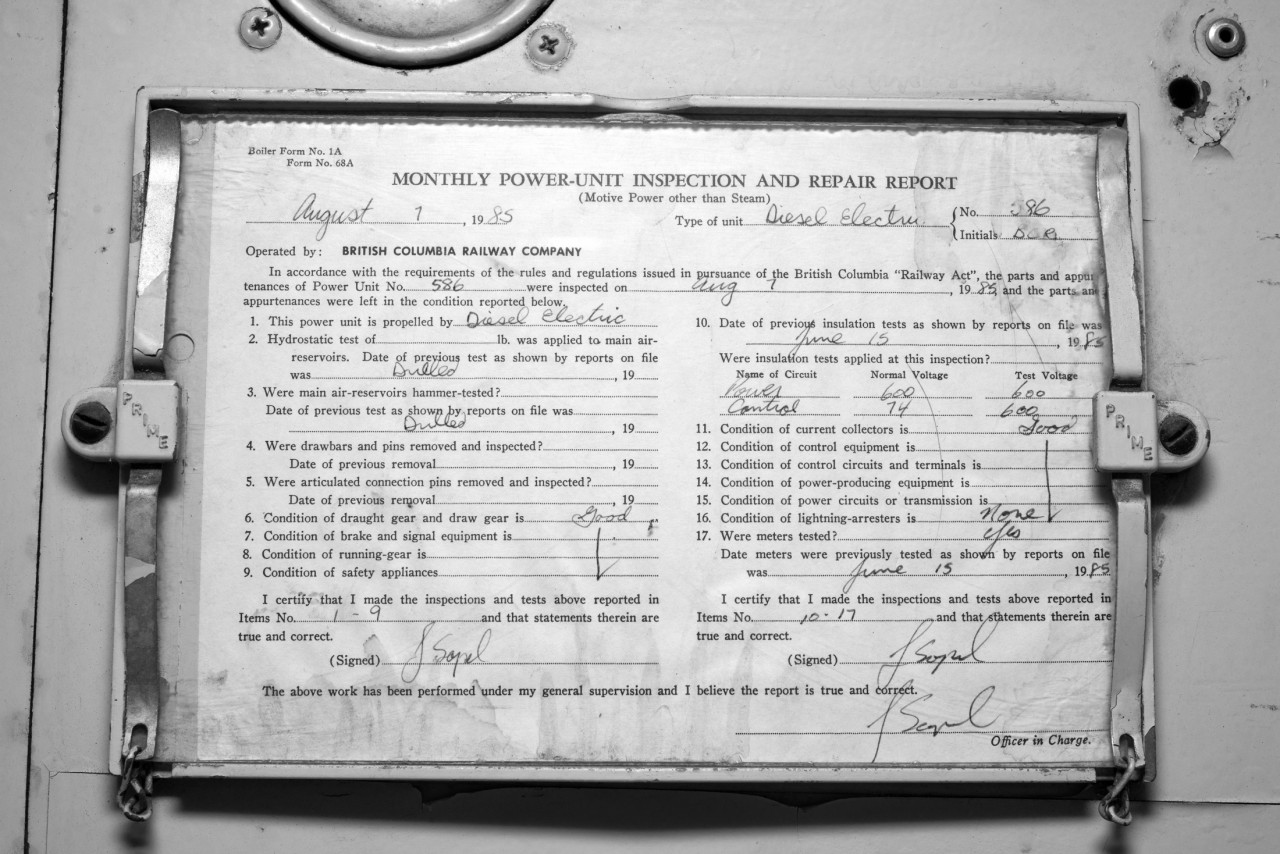 Boiler Form No. 1A
Form No. 68A
MONTHLY POWER-UNIT INSPECTION AND REPAIR REPORT
(Motive Power other than Steam)
August 7, 1985 Type of unit Diesel Electric No. 586
Initials
Operated by: BRITISH COLUMBIA RAILWAY COMPANY
In accordance with the requirements of the rules and regulations issued in pursuance of the British Columbia "Railway Act", the parts and appur
tenances of Power Unit No. 586 were inspected on Aug 7, 1985, and the parts and
appurtenances were left in the condition reported below.
1. This power unit is propelled by Diesel Electric
2. Hydrostatic test of lb. was applied to main air-
reservoirs. Date of previous test as shown by reports on file
was Drilled, 19
3. Were main air-reservoirs hammer-tested?
Date of previous test as shown by reports on file was
Drilled, 19
4. Were drawbars and pins removed and inspected?
Date of previous removal, 19
5. Were articulated connection pins removed and inspected?
Date of previous removal, 19
6. Condition of draught gear and draw gear is Good
7. Condition of brake and signal equipment is
8. Condition of running-gear is
9. Condition of safety appliances
I certify that I made the inspections and tests above reported in
Items No. 1 - 9 and that statements therein are
true and correct.
(Signed) J Sopel
10. Date of previous insulation tests as shown by reports on file was
June 15, 1985
Were insulation tests applied at this inspection?
Name of Circuit Normal Voltage Test Voltage
Power 600 600
Control 74 600
11. Condition of current collectors is Good
12. Condition of control equipment is
13. Condition of control circuits and terminals is
14. Condition of power-producing equipment is
15. Condition of power circuits or transmission is
16. Condition of lightning-arresters is None
17. Were meters tested? Yes
Date meters were previously tested as shown by reports on file
was June 15, 1985
I certify that I made the inspections and tests above reported in
Items No. 10 - 17 and that statements therein are
true and correct.
(Signed) J Sopel
The above work has been performed under my general supervision and I believe the report is true and correct.
J Sopel
Officer in Charge.
PRIME
PRIME